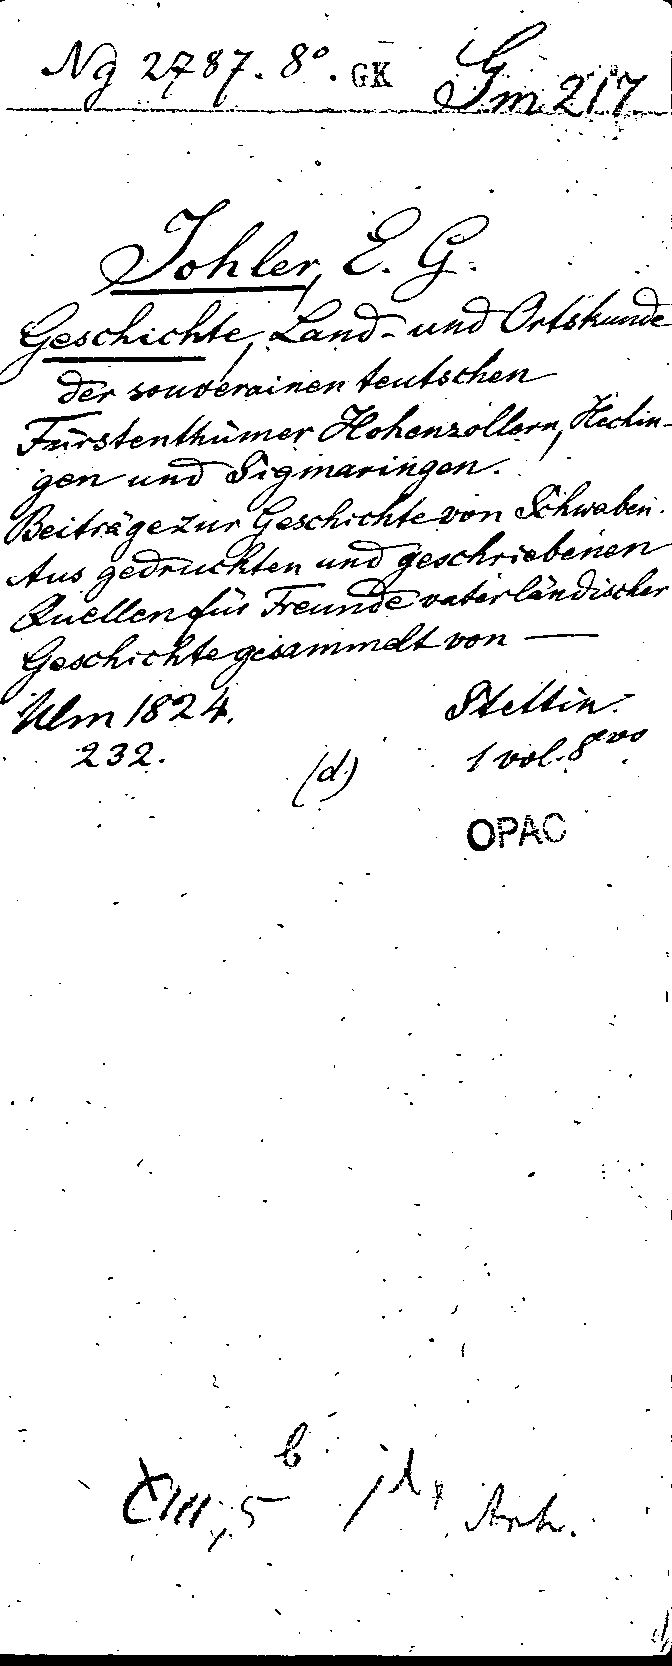 Ng 2787. 8°. GK Gm 217
Johler, E. G.
Geschichte, Land- und Ortskunde
der souverainen teutschen
Fürstenthümer Hohenzollern, Hechin-
gen und Sigmaringen.
Beiträge zur Geschichte von Schwaben.
Aus gedruckten und geschriebenen
Quellen für Freunde vaterländischer
Geschichte gesammelt von —
Ulm 1824. Stettin.
232. (d.) 1 vol. 8vo.
OPAC
b